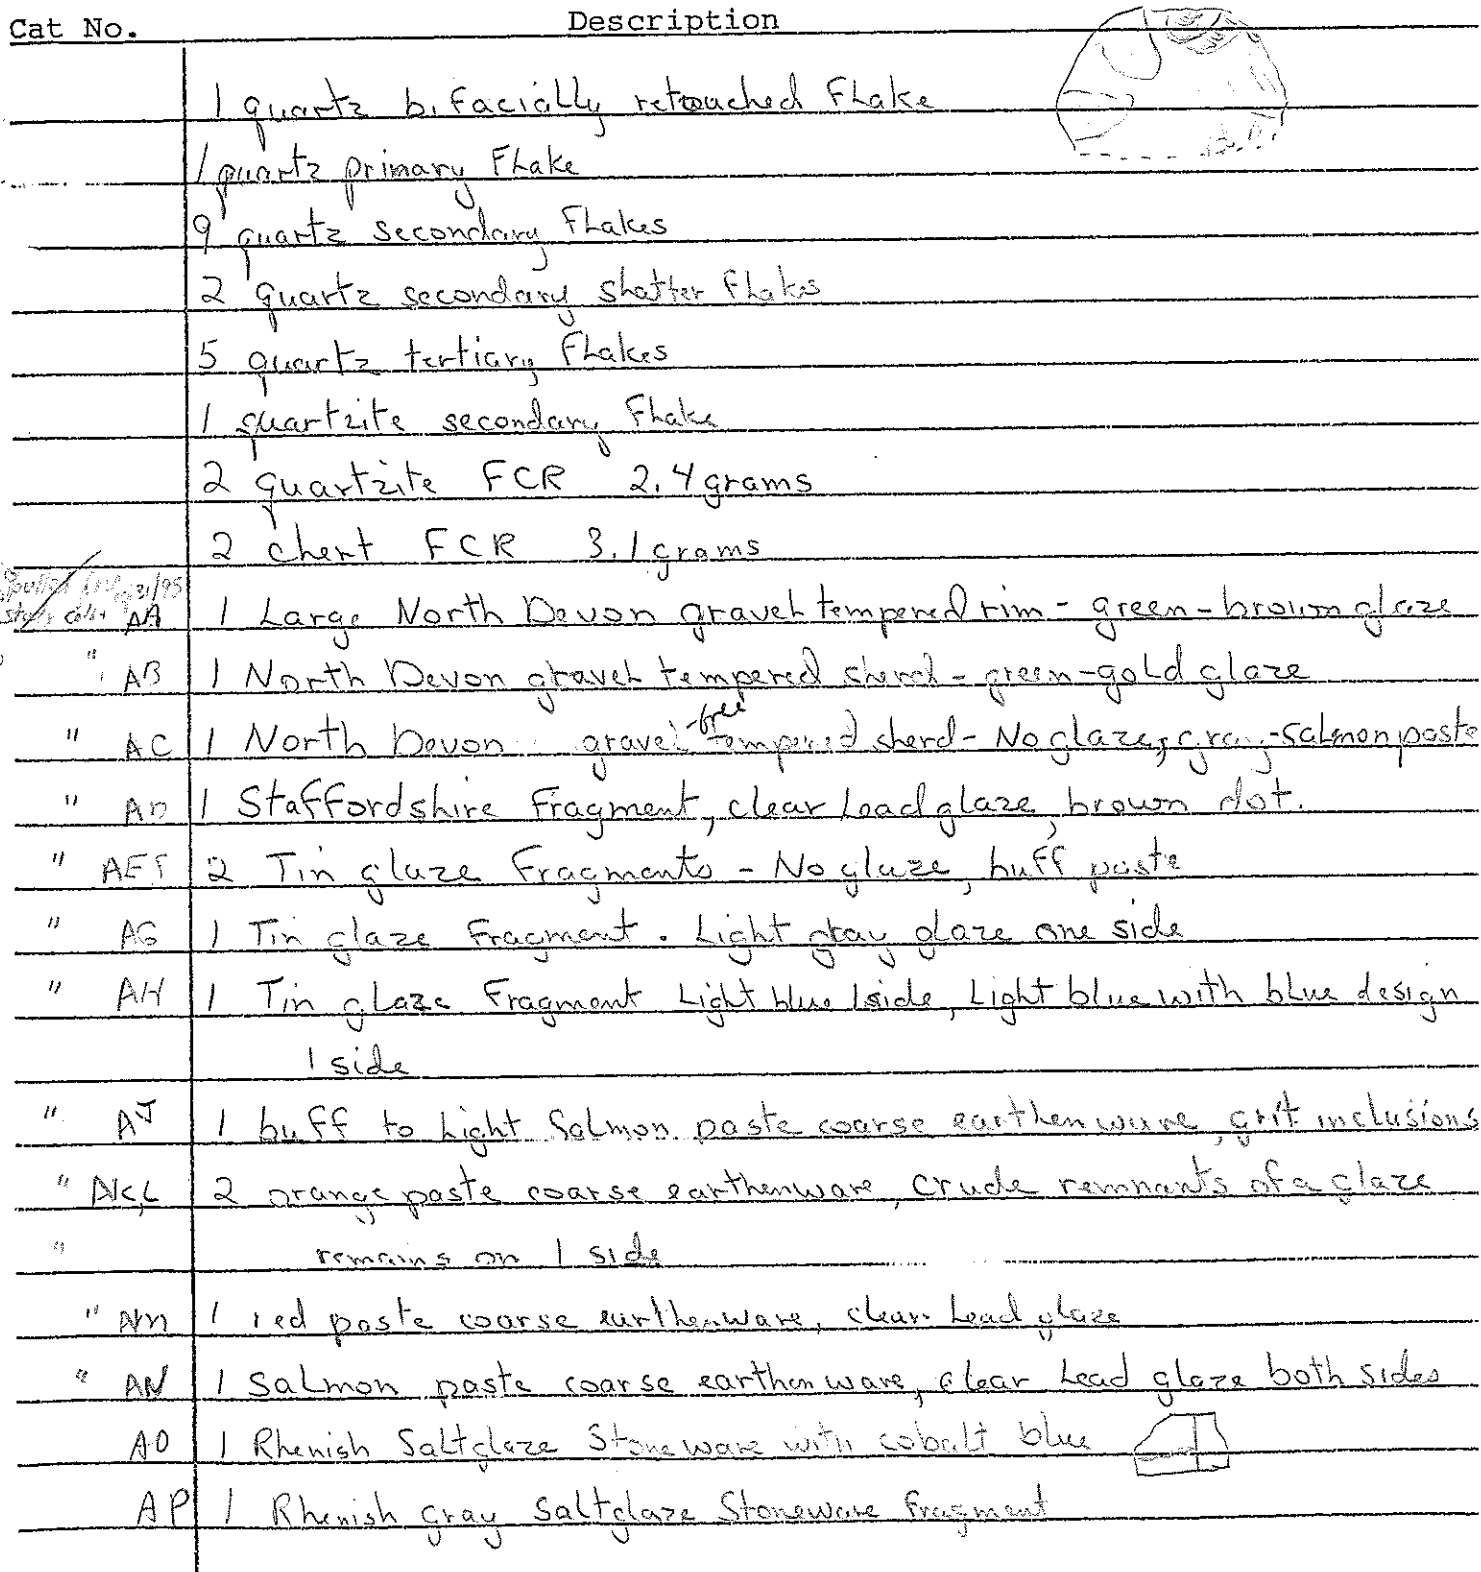 Cat No. Description
1 quartz bifacially retouched Flake
1 quartz primary Flake
9 quartz secondary Flakes
2 quartz secondary shatter Flakes
5 quartz tertiary Flakes
1 quartzite secondary Flake
2 quartzite FCR 2.4 grams
2 chert FCR 3.1 grams
31/95
AA 1 Large North Devon gravel tempered rim - green-brown glaze
" AB 1 North Devon gravel tempered sherd - green-gold glaze
-free
" AC 1 North Devon gravel tempered sherd - No glaze, gray-salmon paste
" AD 1 Staffordshire Fragment, clear Lead glaze, brown dot.
" AEF 2 Tin glaze Fragments - No glaze, buff paste
" AG 1 Tin glaze Fragment. Light gray glaze one side
" AH 1 Tin glaze Fragment Light blue 1 side, Light blue with blue design
1 side
" AJ 1 buff to Light Salmon paste coarse earthenware, grit inclusions
" AK,L 2 orange paste coarse earthenware, crude remnants of a glaze
" remains on 1 side
" AM 1 red paste coarse earthenware, clear Lead glaze
" AN 1 Salmon paste coarse earthenware, clear Lead glaze both sides
AO 1 Rhenish Saltglaze Stoneware with cobalt blue
AP 1 Rhenish Gray Saltglaze Stoneware fragment